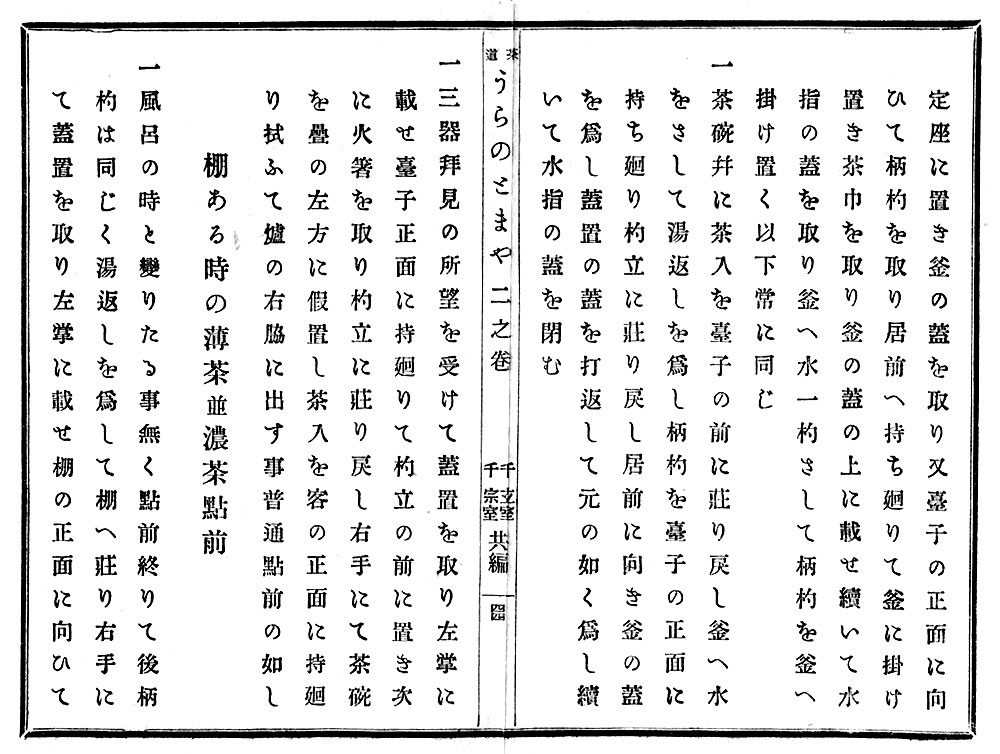 定座に置き釜の蓋を取り又臺子の正面に向
ひて柄杓を取り居前へ持ち廻りて釜に掛け
置き茶巾を取り釜の蓋の上に載せ續いて水
指の蓋を取り釜へ水一杓さして柄杓を釜へ
掛け置く以下常に同じ
一茶碗幷に茶入を臺子の前に莊り戻し釜へ水
をさして湯返しを爲し柄杓を臺子の正面に
持ち廻り杓立に莊り戻し居前に向き釜の蓋
を爲し蓋置の蓋を打返して元の如く爲し續
いて水指の蓋を閉む
茶道
うらのとまや二之卷
千宗室 共編
一三器拜見の所望を受けて蓋置を取り左掌に
載せ臺子正面に持廻りて杓立の前に置き次
に火箸を取り杓立に莊り戻し右手にて茶碗
を疊の左方に假置し茶入を客の正面に持廻
り拭ふて爐の右脇に出す事普通點前の如し
棚ある時の薄茶並濃茶點前
一風呂の時と變りたる事無く點前終りて後柄
杓は同じく湯返しを爲して棚へ莊り右手に
て蓋置を取り左掌に載せ棚の正面に向ひて